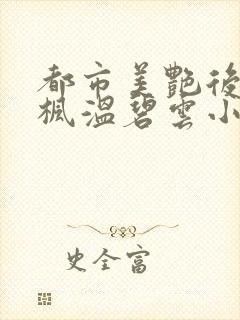 都市美艷後
楓溫碧雲小
史全富